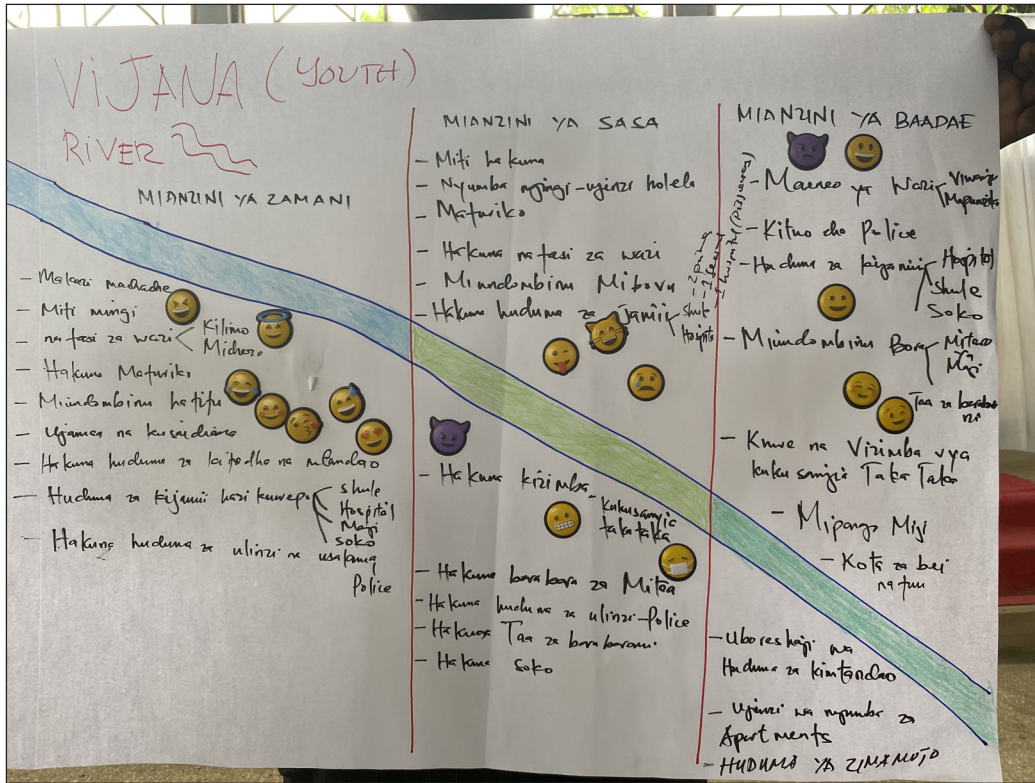 VIJANA (YOUTH)
RIVER
MIANZINI YA ZAMANI
- Makazi machache
- Miti mingi
- nafasi za wazi
Kilimo
Michezo
- Hakuna Mafuriko
- Miundombinu hafifu
- Ujamaa na kusaidiana
- Hakuna huduma za kifedha na mtandao
- Huduma za kijamii hazikuwepo
shule
Hospital
Maji
soko
- Hakuna huduma za ulinzi na usalama
Police
MIANZINI YA SASA
- Miti hakuna
- Nyumba nyingi - ujenzi holela
- Mafuriko
- Hakuna nafasi za wazi
- Miundombinu Mibovu
- Hakuna huduma za jamii
Shule - 2 primary
- 1 secondary
Hospital
1 hospital (Dispensary)
- Hakuna kizimba -
kukusanyia
taka taka
- Hakuna barabara za Mitaa
- Hakuna huduma za ulinzi - Police
- Hakuna Taa za barabarani
- Hakuna soko
MIANZINI YA BAADAE
- Maeneo ya Wazi
Viwanja
Mapumziko
- Kituo cha Police
- Huduma za kijamii
Hospital
Shule
Soko
- Miundombinu Bora
Mitaro
Maji
Taa za barabarani
- Kuwe na Vizimba vya
kukusanyia Taka Taka
- Mipango Miji
- Kota za bei
nafuu
- Uboreshaji wa
Huduma za kimtandao
- Ujenzi wa nyumba za
Apartments
- HUDUMA YA ZIMAMOTO